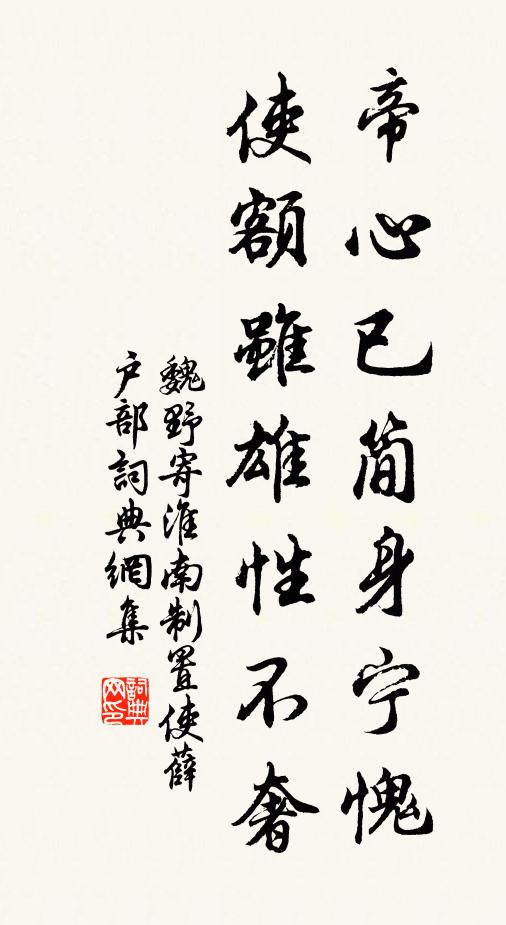 帝心已简身宁愧
使額雖雄性不奢
魏野寄淮南制置使薛
户部詞典網集
詞典
网印